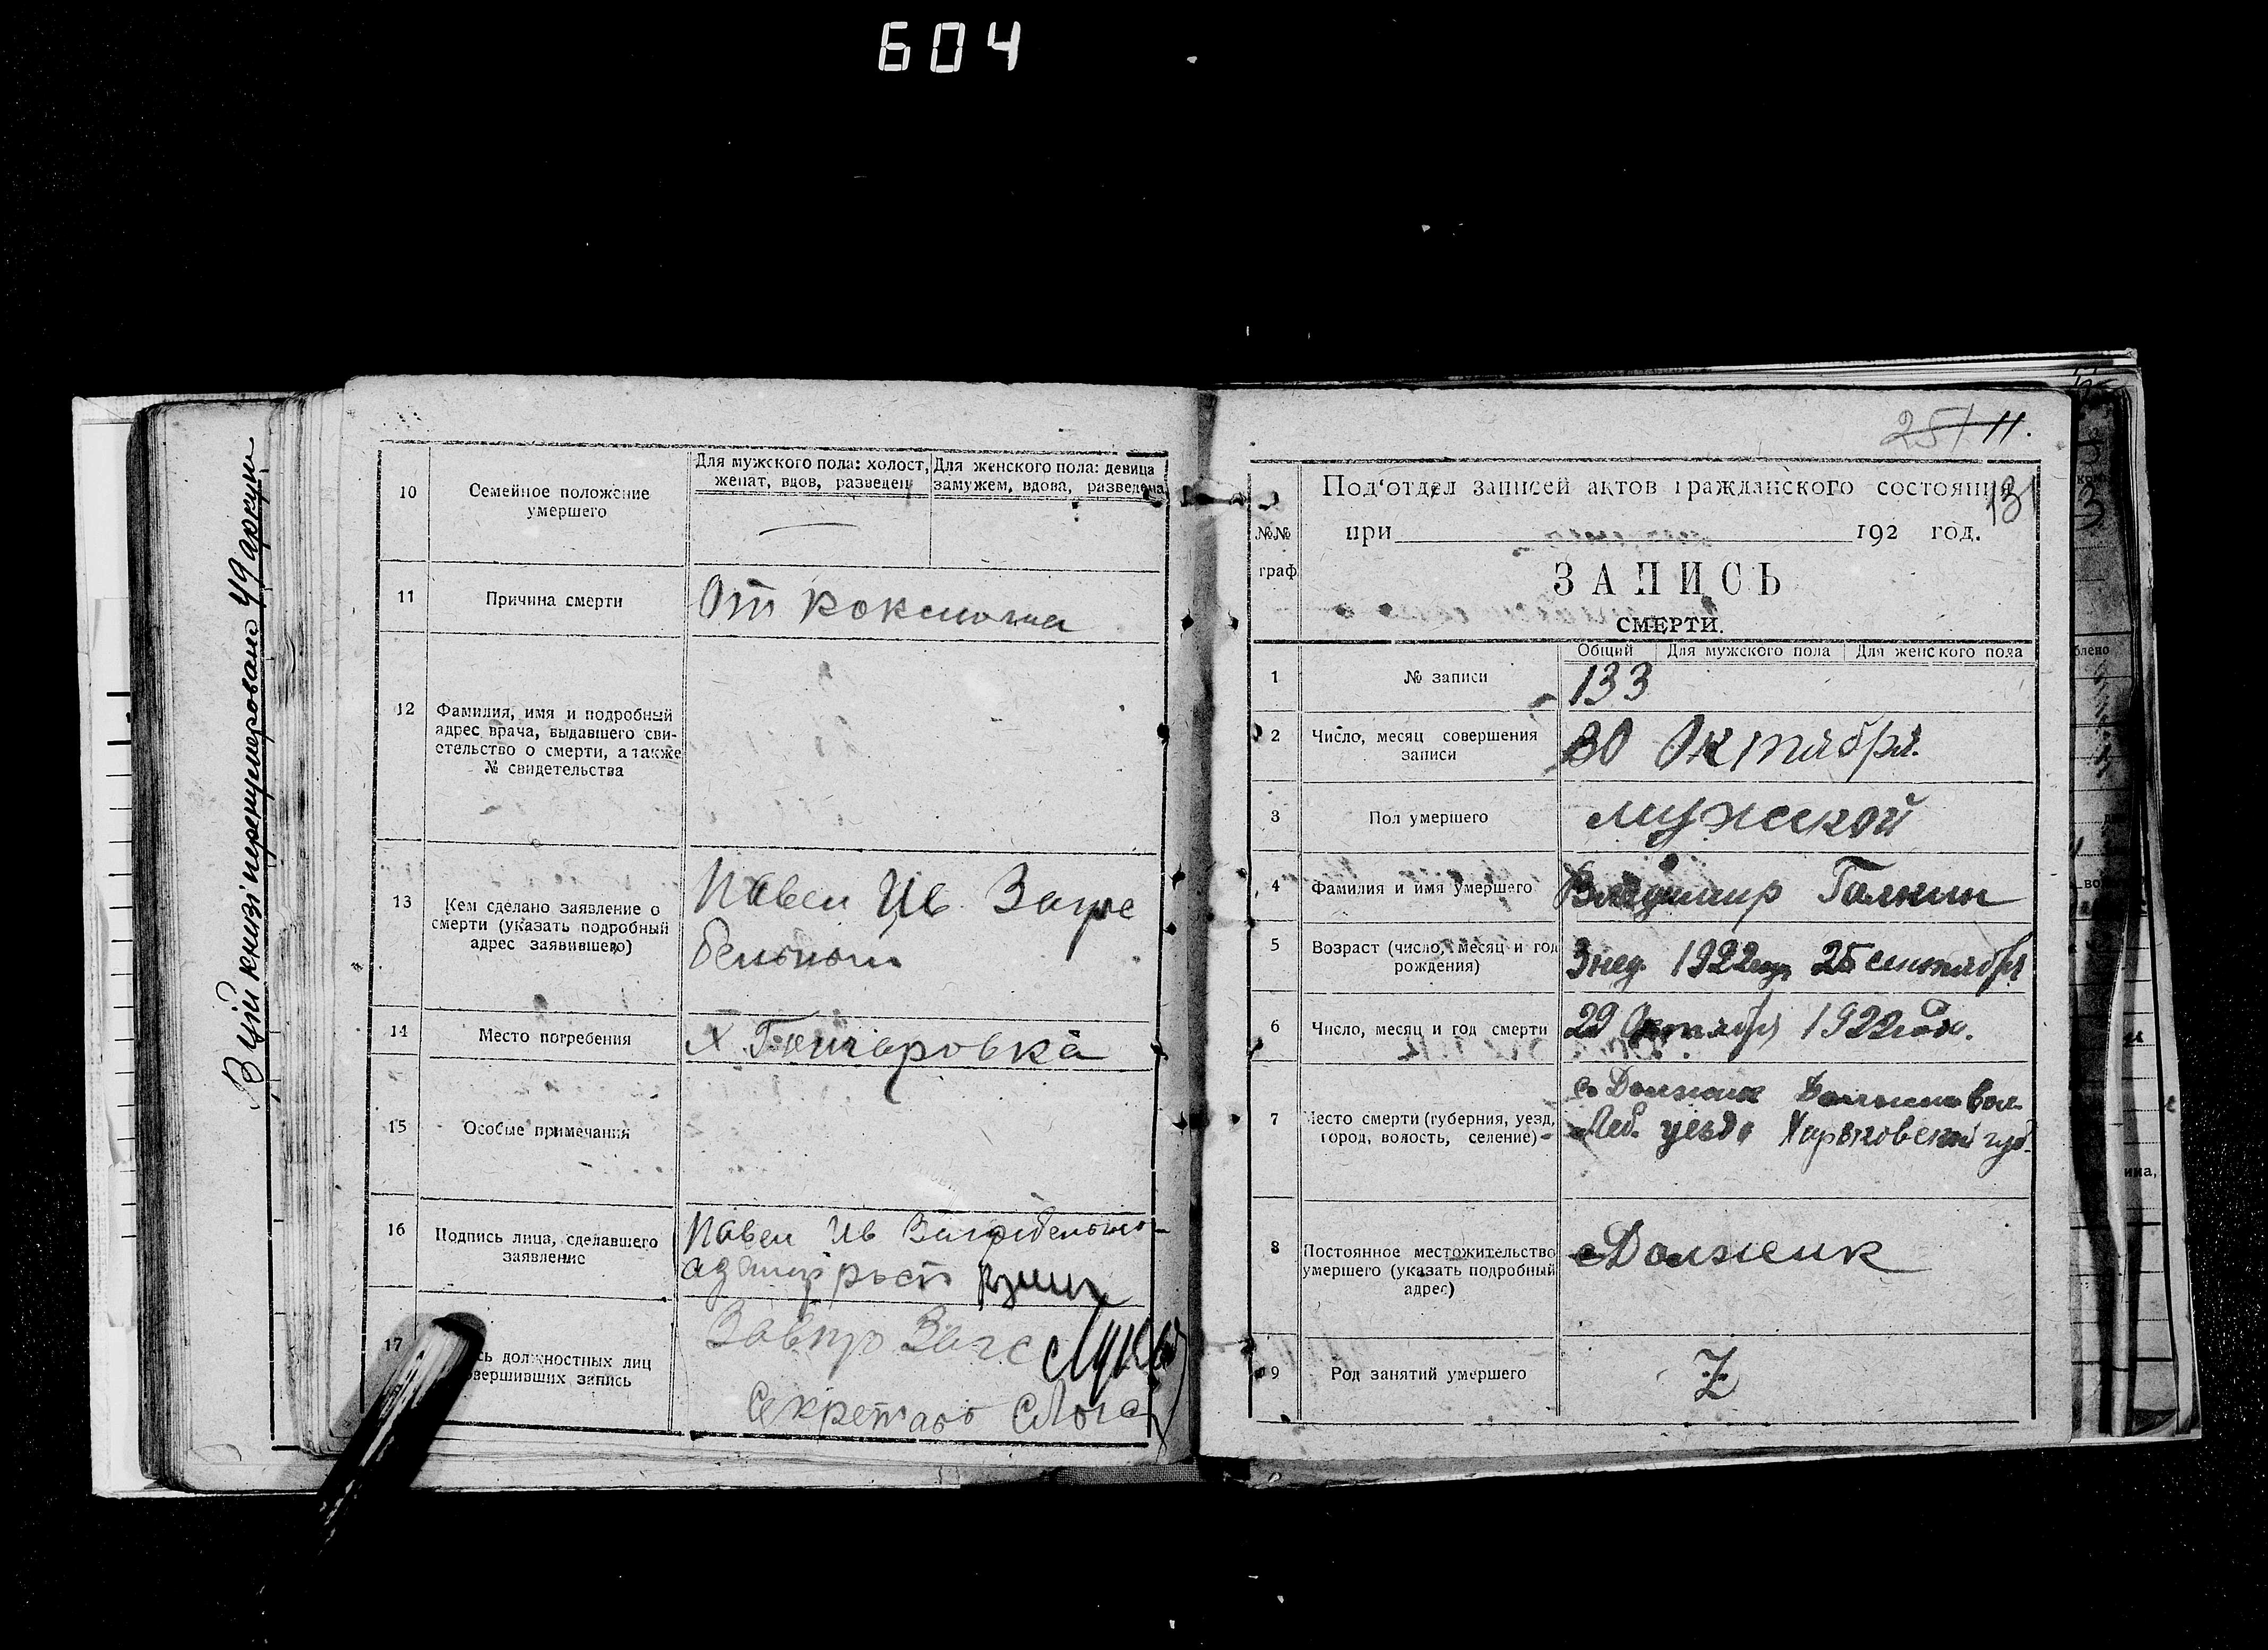 604
В цій книзі перенумеровано 49 аркуш
10
Семейное положение
умершего
Для мужского пола: холост,
женат, вдов, разведен
Для женского пола: девица
замужем, вдова, разведена
11
Причина смерти
От коклюша
12
Фамилия, имя и подробный
адрес врача, выдавшего сви-
етельство о смерти, а также
№ свидетельства
13
Кем сделано заявление о
смерти (указать подробный
адрес заявившего)
Павел Ив Загре
бельный
14
Место погребения
х
15
Особые примечания
16
Подпись лица, сделавшего
заявление
Павел Ив Загребельный
17
сь должностных лиц
овершивших запись
Завпр Загс
Секретарь
25/11.
13
Под'отдел записей актов гражданского состояния
№№
граф
при 192 год.
ЗАПИСЬ
СМЕРТИ.
Общий Для мужского пола Для женского пола
1
№ записи
133
2
Число, месяц совершения
записи
30 Октября.
3
Пол умершего
мужской
4
Фамилия и имя умершего
Владимир Галкин
5
Возраст (число, месяц и год
рождения)
3 нед. 1922 году 25 сентября
6
Число, месяц и год смерти
29 Октября 1922 года.
7
Место смерти (губерния, уезд,
город, волость, селение)
с Должик вол
Леб. уезда Харьковской губ.
8
Постоянное местожительство
умершего (указать подробный
адрес)
с Должик
9
Род занятий умершего
Z